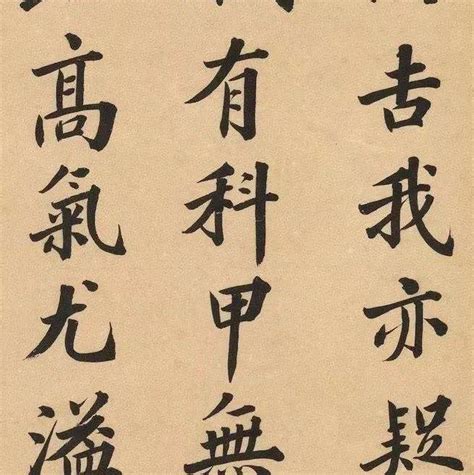 吉我亦疑
有科甲無
髙氣尤溢